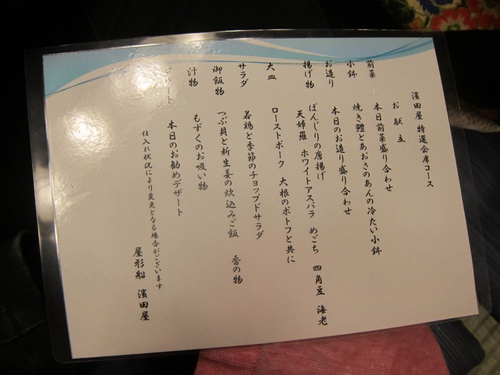 濱田屋 特選会席コース
お献立
前菜 本日前菜盛り合わせ
小鉢 焼き鱧とあおさのあんの冷たい小鉢
お造り 本日のお造り盛り合わせ
揚げ物 ぼんじりの唐揚げ
天婦羅 ホワイトアスパラ めごち 四角豆 海老
大皿 ローストポーク 大根のポトフと共に
サラダ 若鶏と季節のチョップドサラダ
御飯物 つぶ貝と新生姜の炊込みご飯 香の物
汁物 もずくのお吸い物
ート 本日のお勧めデザート
仕入れ状況により変更となる場合がございます
屋形船 濱田屋